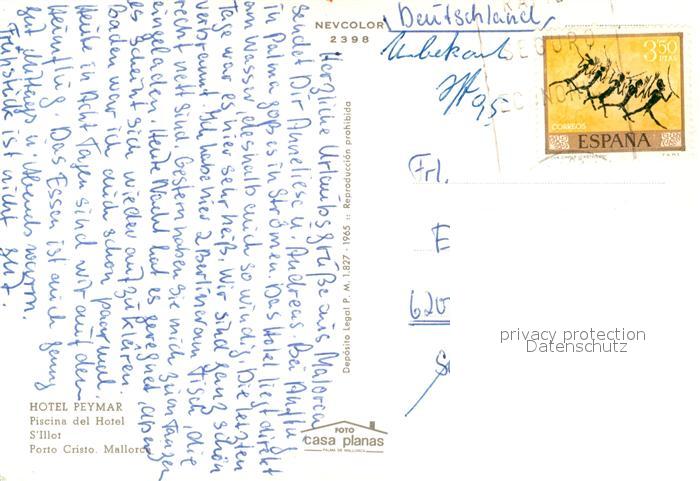 Herzliche Urlaubsgrüße aus Malorca
sendet Dir Anneliese u. Andreas. Bei Anflug
in Palma goß es in Strömen. Das Hotel liegt direkt
am Wasser, deshalb auch so windig. Die letzten
Tage war es hier sehr heiß. Wir sind ganz schön
verbrannt. Ich habe hier 2 Berlineram Tisch, die
recht nett sind. Gestern haben sie mich zum Tanzen
eingeladen. Heute Nacht hat es geregnet, aber
es scheint sich wieder aufzuklären.
Baden war ich auch schon paarmal.
Heute in Acht Tagen sind wir auf dem
Heimflug. Das Essen ist auch genug
gut Mittags u. Abends warm.
Frühstück ist nicht gut.
HOTEL PEYMAR
Piscina del Hotel
S'Illot
Porto Cristo. Mallorca
NEVCOLOR
2398
Depósito Legal P. M. 1.827 - 1965 :: Reproducción prohibida
FOTO
casa planas
PALMA DE MALLORCA
Deutschland
Unbekannt
SEGURO
3,50
PTAS
CORREOS
ESPAÑA
Frl.
E
620
privacy protection
Datenschutz